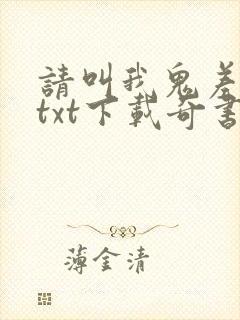 請叫我鬼差
txt下載奇書
薄金清